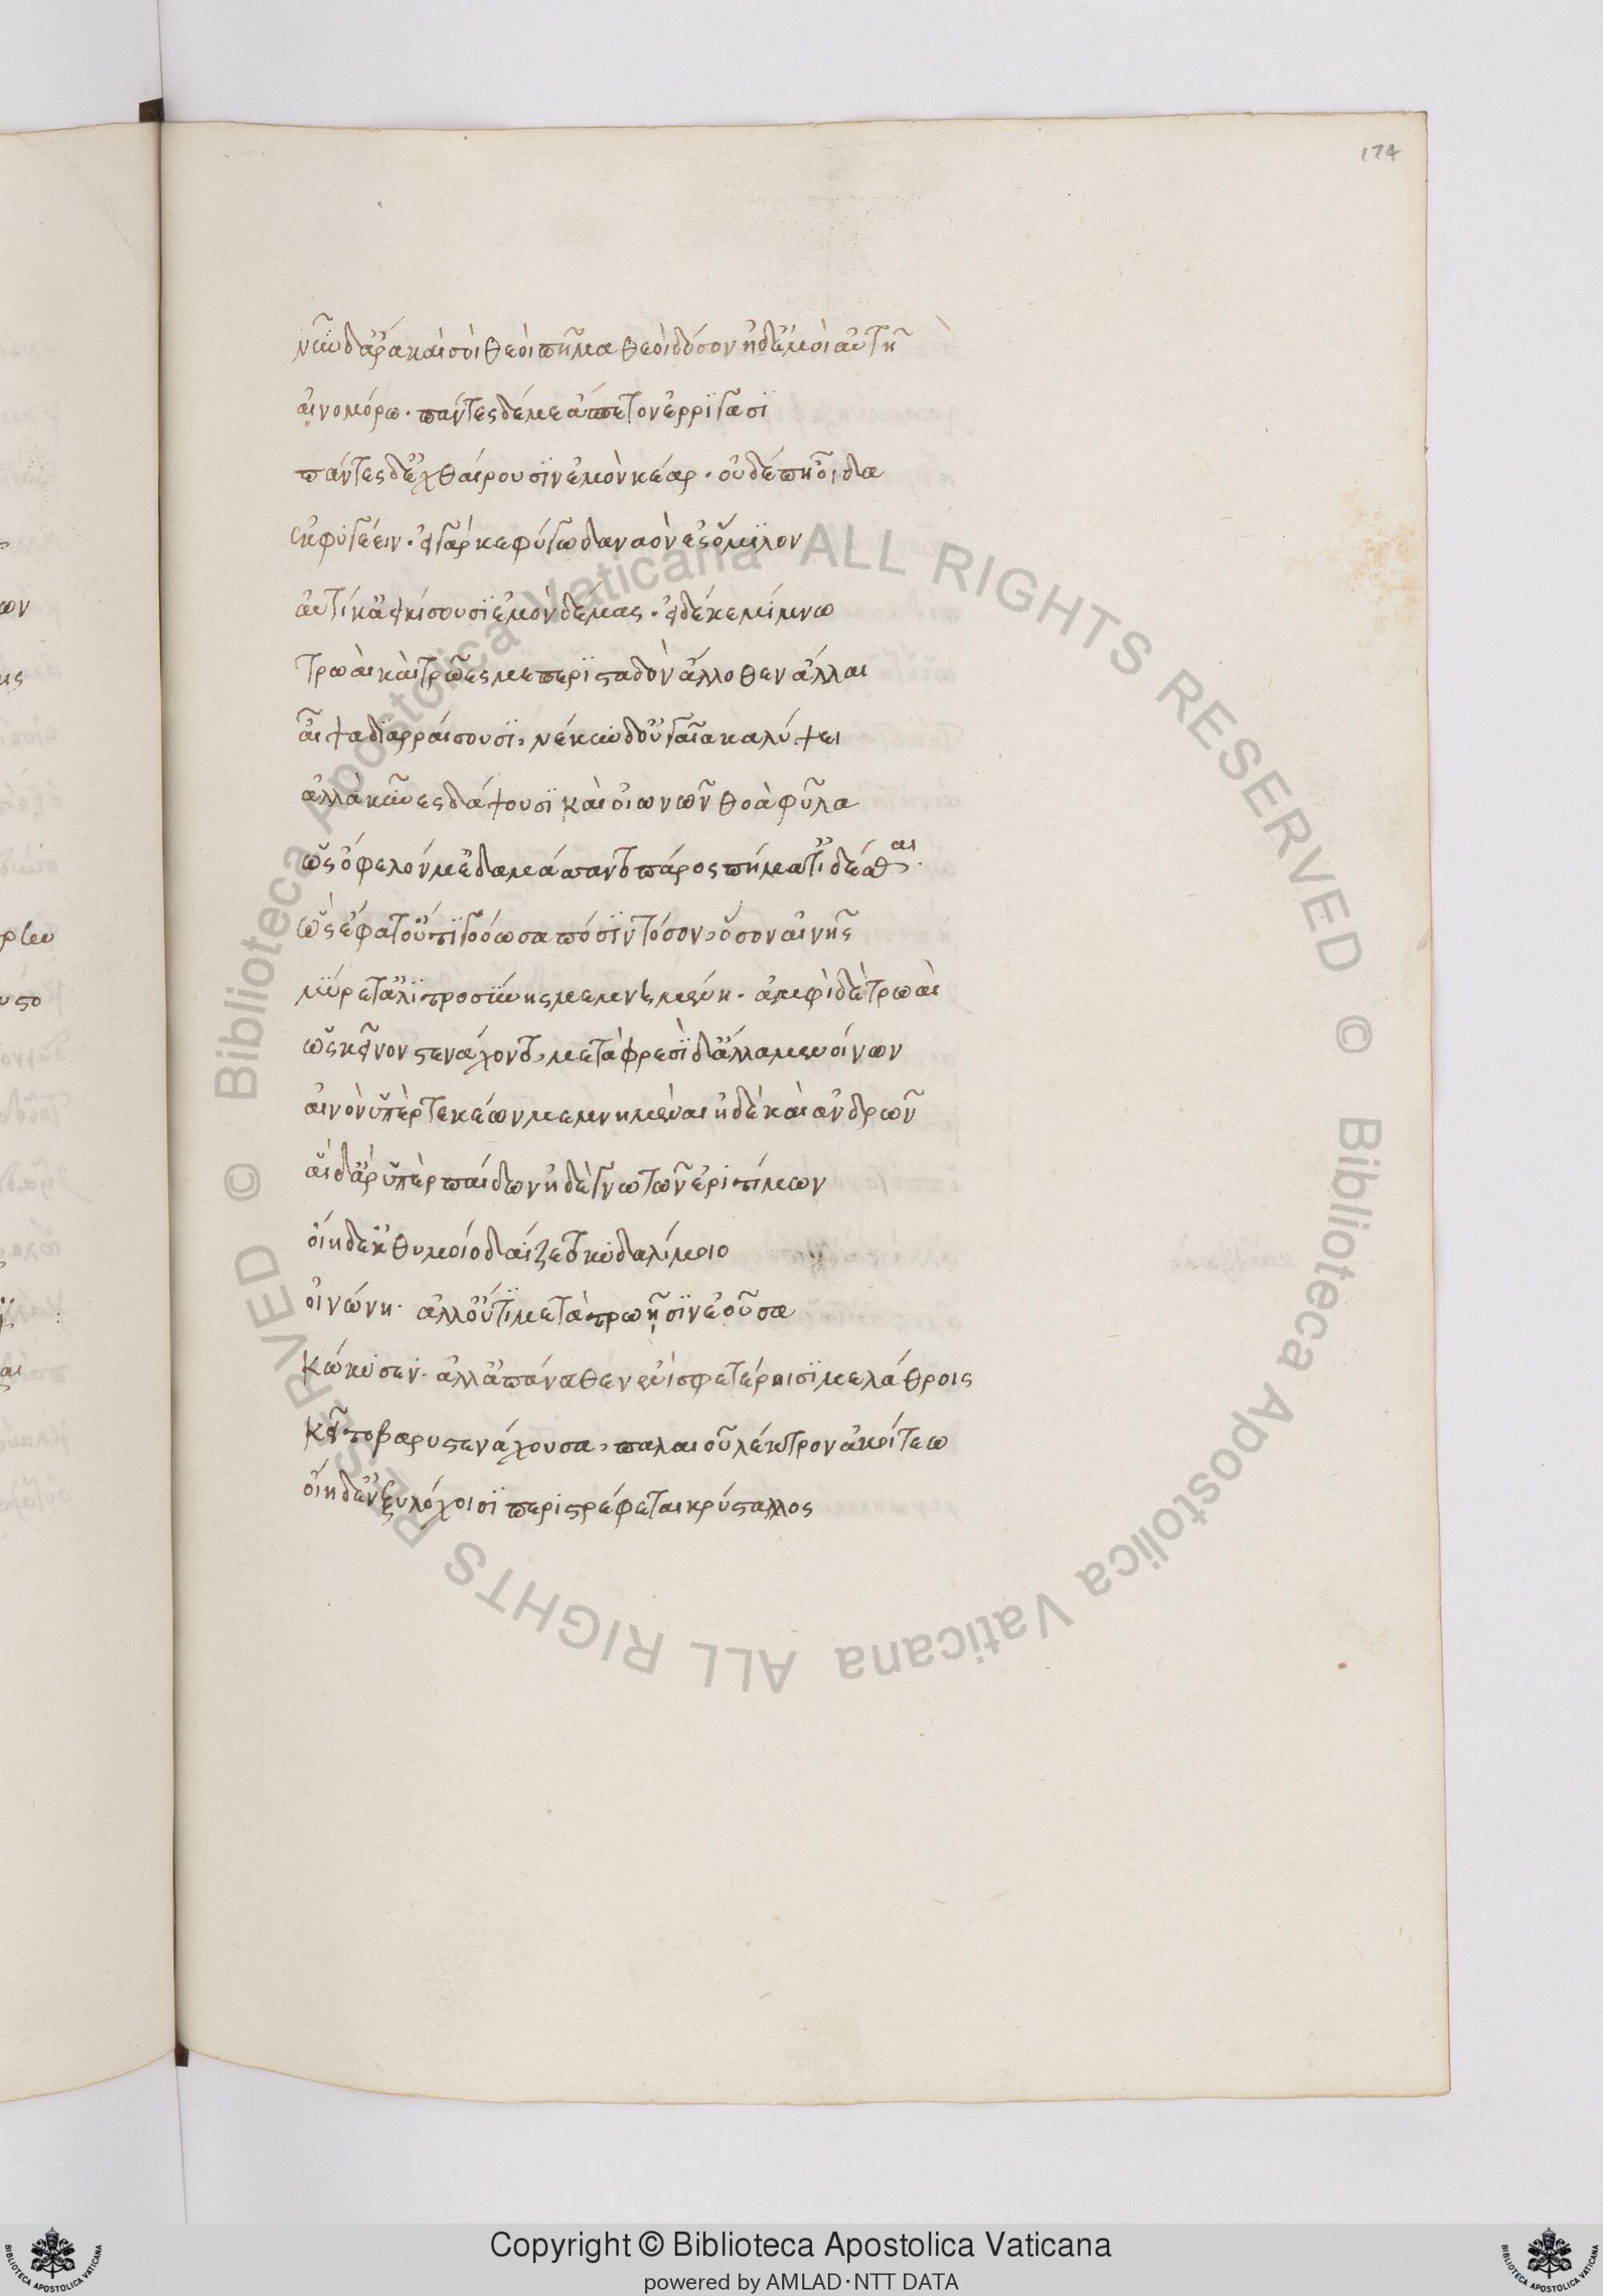 174
νῦν δ' ἄρα καὶ σοὶ θεοὶ πῆμα θεοὶ δόσον ἠδ' ἐμοὶ αὐτῆ
αἰνομόρω· πάντες δέ με ἄσπετον ἐρρίγασι
πάντες δ' ἐχθαίρουσιν ἐμὸν κέαρ· οὐδέ πη οἶδα
ἐκφυγέειν· εἰ γάρ κε φύγω δαναὸν ἐς ὅμιλον
αὐτίκ' ἀεικίσουσι ἐμὸν δέμας· εἰ δέ κε μίμνω
τρωαὶ καὶ τρῶες με περισταδὸν ἄλλοθεν ἄλλαι
αἶψα διαρραίσουσι, νέκυν δ' οὐ γαῖα καλύψει
ἀλλὰ κύνες δάψουσι καὶ οἰωνῶν θοὰ φῦλα
ὡς ὄφελόν μ' ἐδαμά πάρος πήματ' ἰδέσθαι.
ὣς ἔφατ' οὔτι γοόωσα πόσιν τόσον, ὅσον αἰνῆς
μύρετ' ἀλιτροσύνης μεμνημένη· ἀμφὶ δὲ τρωαὶ
ὡς κεῖνον στενάχοντο, μετὰ φρεσὶ δ' ἄλλα μενοίνων
αἱ μὲν ὑπὲρ τεκέων μεμνημέναι ἠδὲ καὶ ἀνδρῶν
αἱ δ' ἄρ' ὑπὲρ παίδων ἠδὲ γνωτῶν ἐριτίμων
οἴη δ' ἐκ θυμοῖο δαΐζετο κυδαλίμοιο
οἰνώνη· ἀλλ' οὔτι μετὰ τρωῇσιν ἐοῦσα
κώκυσεν· ἀλλ' ἀπάνευθεν ἐνὶ σφετέροισι μελάθροις
κεῖτο βαρυστενάχουσα, παλαιοῦ λέκτρον ἀκοίτεω
οἵη δ' ἐν ξυλόχοισι περιστρέφεται κρύσταλλος
Copyright © Biblioteca Apostolica Vaticana
powered by AMLAD·NTT DATA